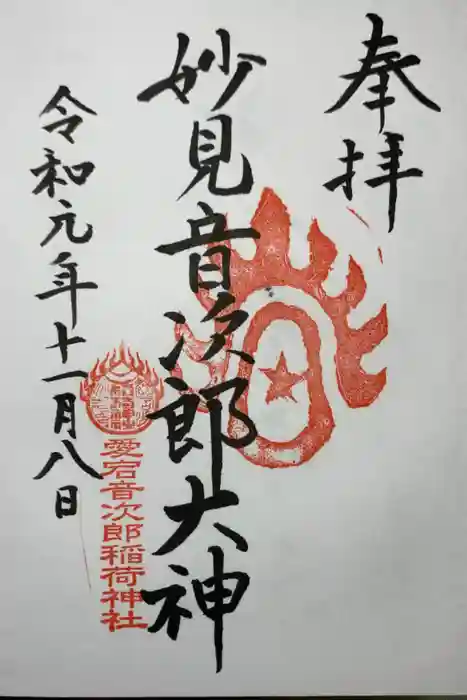 奉拝
妙見音次郎大神
令和元年十一月八日
愛宕音次郎稲荷神社